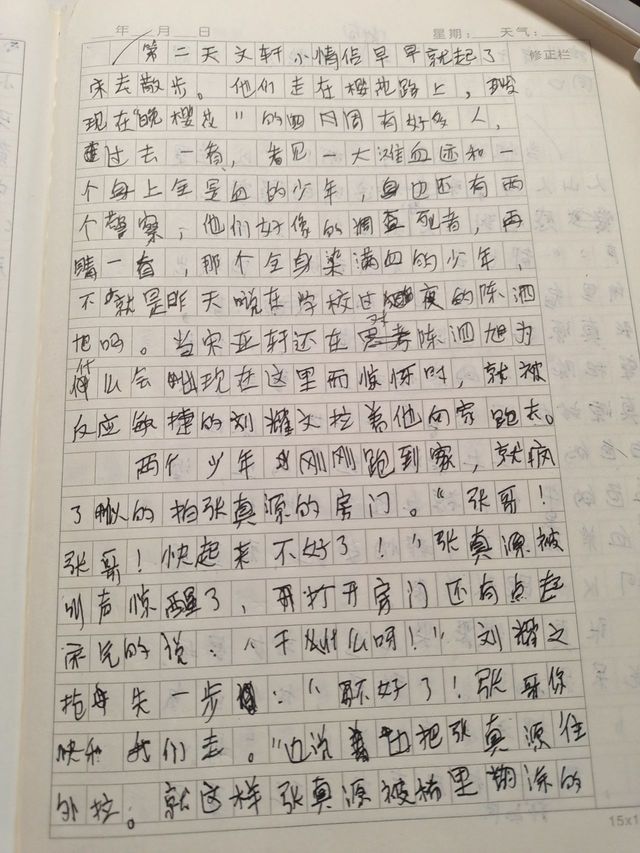 年 月 日 星期： 天气：
第二天文轩小情侣早早就起了 修正栏
床去散步。他们走在樱花路上，发
现在“晚樱花”的四周围有好多人，
过去一看，看见一大滩血迹和一
个身上全是血的少年，身边还有两
个警察，他们好像的调查死者，再
睛一看，那个全身染满血的少年，
不就是昨天说在学校过夜的陈泗
旭吗。当宋亚轩还在对陈泗旭为
什么会出现在这里而惊讶时，就被
反应敏捷的刘耀文拉着他向家跑去。
两个少年刚刚跑到家，就疯
了似的拍张真源的房门。“张哥！
张哥！快起来不好了！”张真源被
叫声惊醒了，打开房门还有点起
床气的说：“干什么呀！”刘耀文
抢先一步：“不好了！张哥你
快和我们走。”边说边把张真源往
外拉。就这样张真源被稀里糊涂的